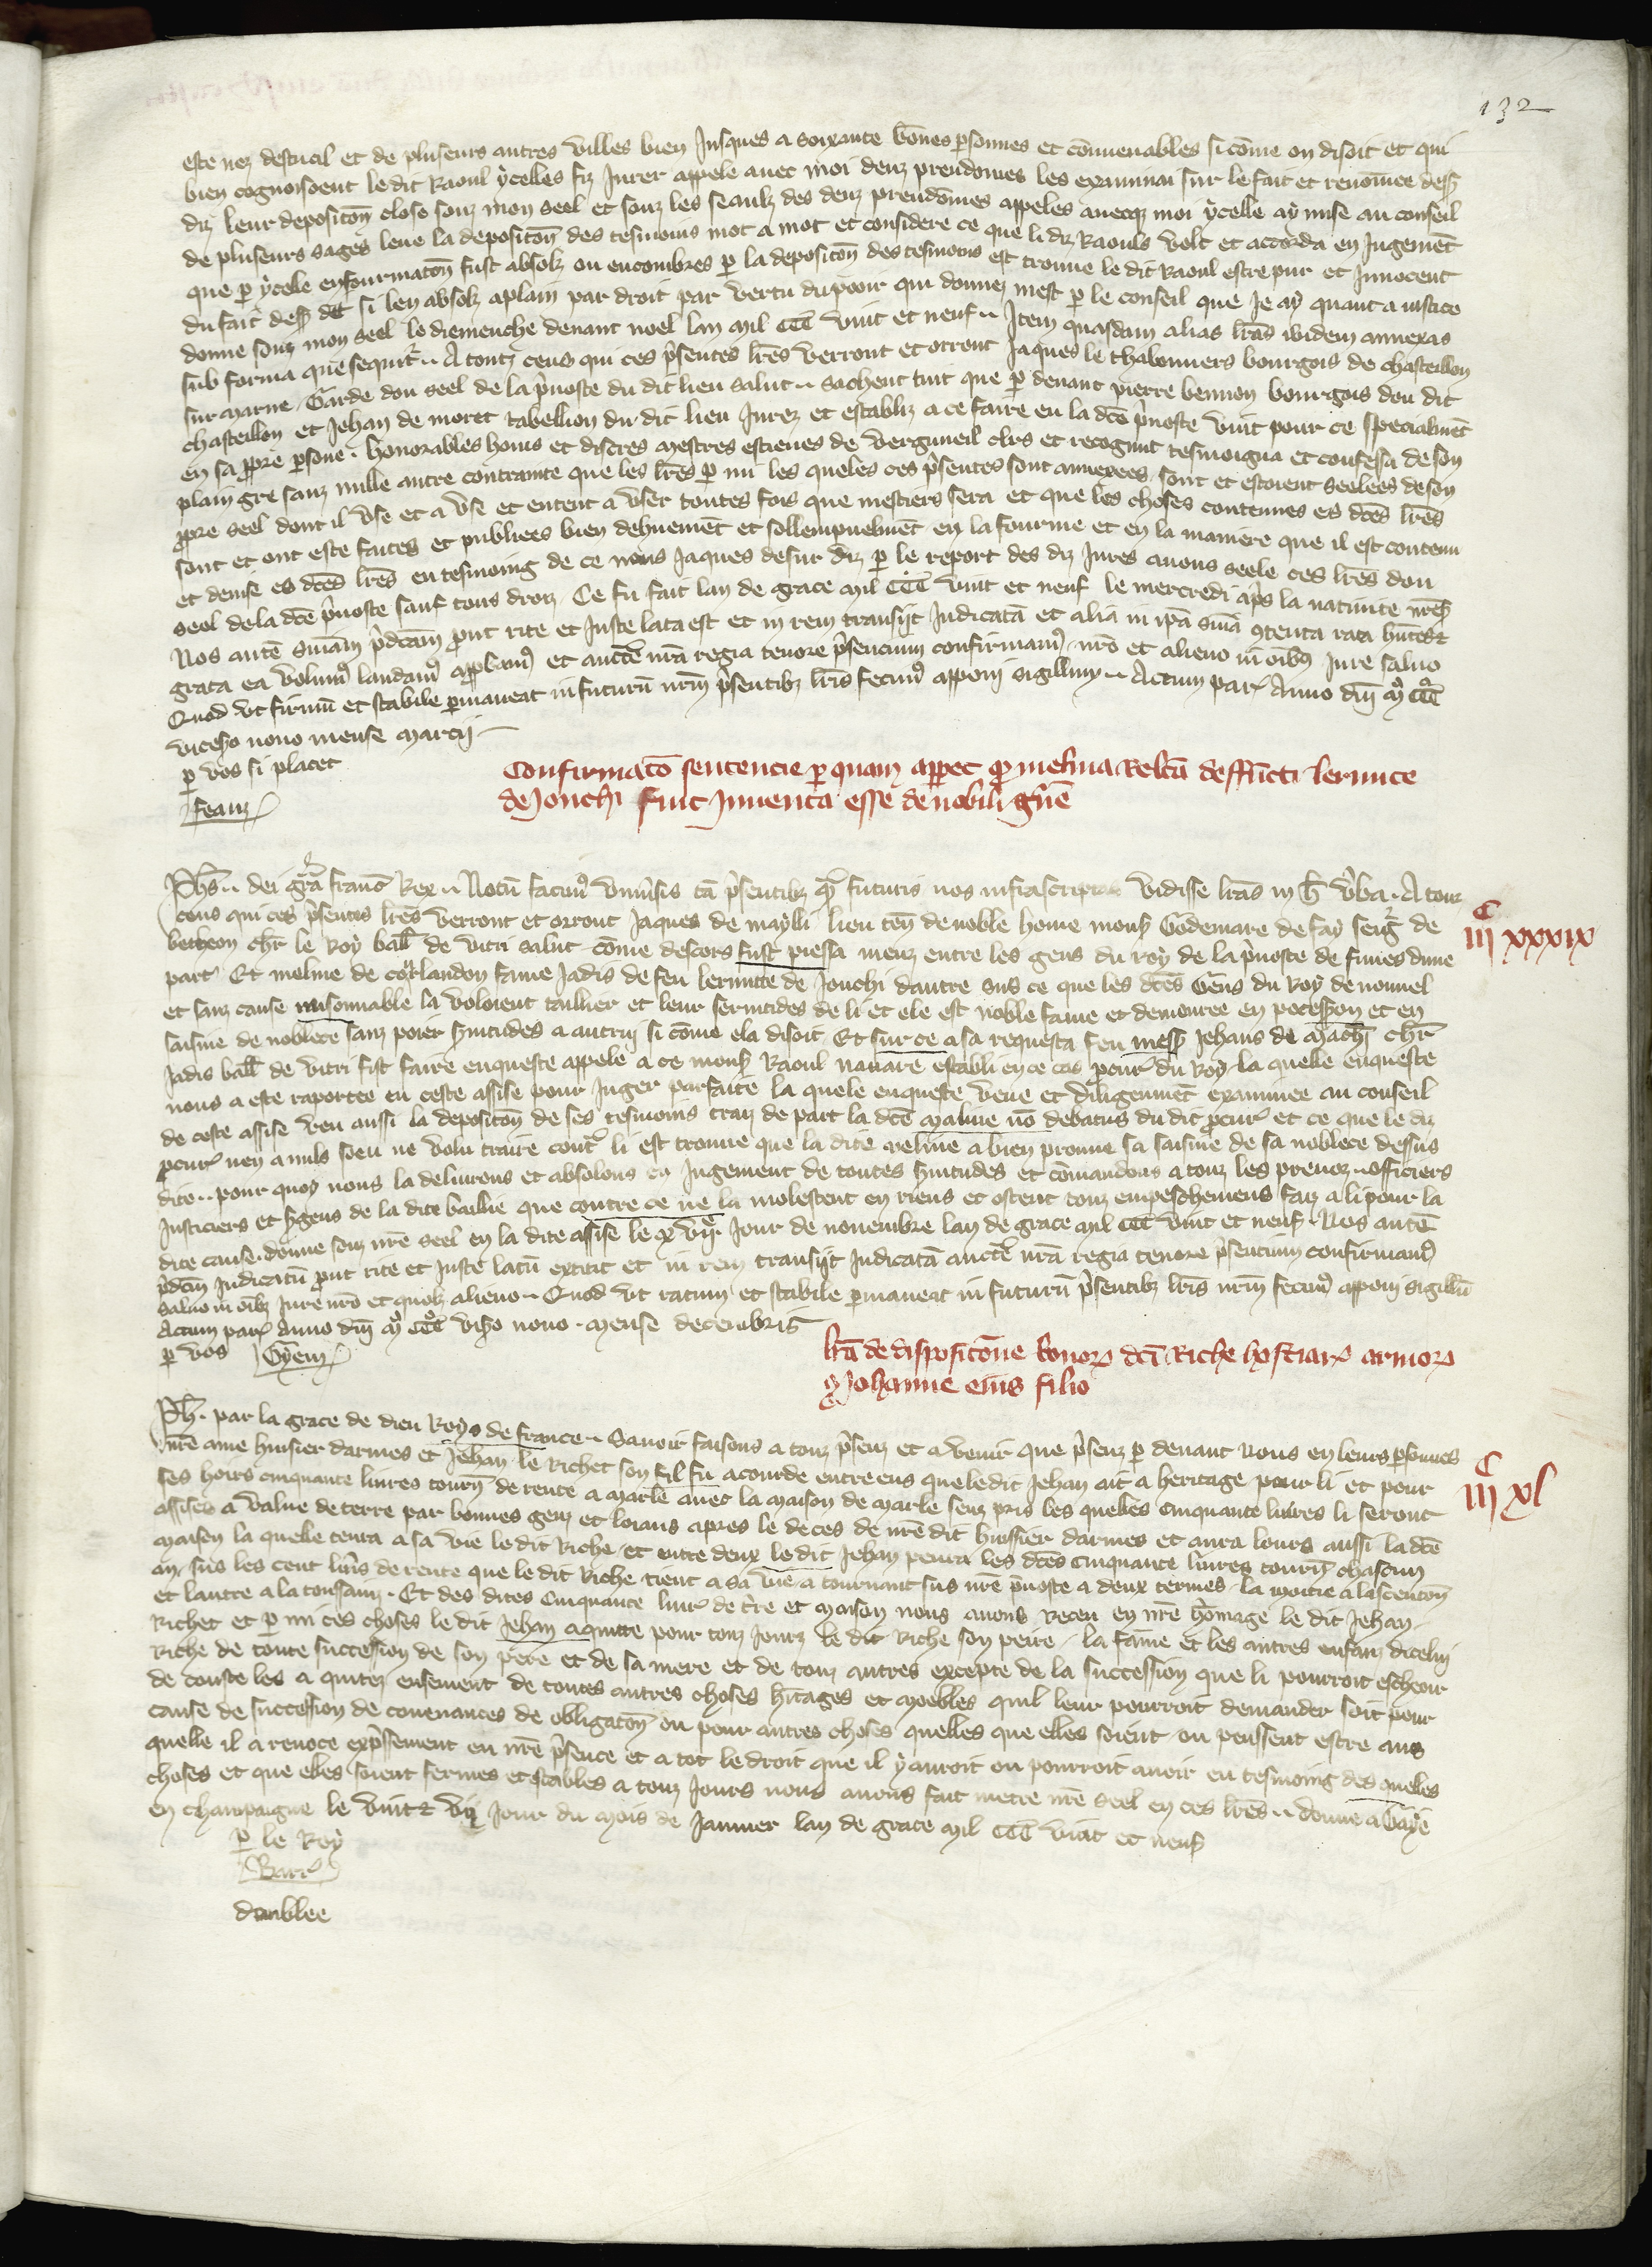 132
este nez destueil et de pluseurs autres villes bien jusques a soixante bones personnes et convenables si come on disoit et qui
bien cognoissoent le dit Raoul ycelles fiz jurer appele avec moi deuz preudomes les examinai sur le fait et renomee dess
diz leur depositon close souz mon seel et souz les seaulz des deuz preudomes appeles avecqz moi ycelle ay mise au conseil
de pluseurs sages leue la depositon des tesmoins mot a mot et considere ce que li diz Raouls volt et accorda en jugement
que par ycelle enfourmaton fust absolz ou encombres par la depositon des tesmoins est trouve le dit Raoul estre pur et innocent
du fait dess dit si len absolz aplain par droit par vertu du pooir qui donnez mest par le conseil que je ay quant a justice
donne souz mon seel le diemenche devant noel lan mil CCC vint et neuf Item quasdam alias lras ibidem annexas
sub forma que sequitr A touz ceus qui ces psentes lres verront et orront Jaques le chabonniers bourgois de chasteillon
sur marne Garde dou seel de la pvoste du dit lieu salut sachent tuit que par devant pierre bennon bourgois dou dit
chasteillon et Jehan de moret tabellion du dit lieu jurez et establiz a ce faire en la dce pvoste vint pour ce specialmet
en sa ppre psone honorables homs et discres mestres estienes de vergnueil clrs et recognut tesmoigna et confessa de son
plain gre sanz nulle autre contrainte que les lres par mi les queles ces psentes sont annexees sont et estoient seelees de son
ppre seel dont il use et a use et entent a user toutes fois que mestiers sera et que les choses contenues es dces lres
sont et ont este faites et publiees bien dehuement et sollempnelmet en la fourme et en la maniere que il est contenu
et devise es dces lres en tesmoing de ce nous Jaques desur diz par le report des diz jures avons seele ces lres dou
seel de la dce pvoste sauf tous droiz Ce fu fait lan de grace mil CCC vint et neuf le mercredi aps la nativite nres
Nos aute sniam pdcam put rite et juste lata est et in rem transijt judicata et alia in ipa snia contenta rata hntes et
grata ea volum laudam approbam et aucte nra regia tenore psencium confirmam nro et alieno in oibz jure salvo
Quod ut firmu et stabile pmaneat in futuru nrm psentibz lris fecim apponi sigillum Actum par Anno dni mo CCCo
vicesio nono mense marcij
p vos si placet
feauz
Confirmaco sentencie per quam apparet quod melina relca deffuncti lermite
de Jonchi fuit inventa esse de nobili gne
Phs dei gra franc Rex Notu facim univsis ta psentibz qua futuris nos infrascriptas vidisse lras in hec vba A touz
ceus qui ces psentes lres verront et orront Jaques de maylli lieu ten de noble home mons Godemare de fay seigr de
betheon chr le Roy ball de vitri salut come descors fust piessa meuz entre les gens du roy de la pvoste de fimes dune
part Et meline de corlandon fame jadis de feu lermite de Jonchi dautre sus ce que les dces Gens du Roy de nouvel
et sanz cause raisonnable la voloient taillier et lever servitudes de li et ele est noble fame et demouree en possession et en
saisine de noblece sanz poier svitudes a autruy si come ela disoit Et sur ce a sa requeste feu mess Jehans de mach chr
jadis ball de vitri fist faire enqueste appele a ce mons Raoul navare establi en ce cas pcur du Roy la quelle enqueste
nous a este raportee en ceste assise pour juger parfaite la quele enqueste veue et diligenmet examinee au conseil
de ceste assise veu aussi la depositon de ses tesmoins traiz de part la dce maline no debatus du dit pcur et ce que le diz
pcur nen a nuls sceu ne volu traire cont li est trouve que la dite meline a bien prouve sa saisine de sa noblece dessus
dite pour quoy nous la delivrons et absolons en jugement de toutes svitudes et comandons a touz les prevoz officiers
justiciers et sgens de la dite baillie que contre ce ne la molestent en riens et ostent touz empeschemens faiz a li pour la
dite cause donne souz nre seel en la dite assise le xvije jour de novembre lan de grace mil CCC vint et neuf Nos aute
pdcm judicatu put rite et juste latu extitit et in rem transijt judicata aucte nra regia tenore psencium confirmam
salvo in oibz jure nro et quolz alieno Quod ut ratum et stabile pmaneat in futuru psentibz lris nrm fecim apponi sigillu
Actum par Anno dni mo CCCo viceo nono mense decembris
p vos Gyem
C
iij xxxix
lra de dispositone bonor dci Riche hostiar armor
Johanne eius filio
Ph par la grace de dieu Roys de france Savoir faisons a touz psenz et avenir que psenz par devant nous en leurs psonnes
nre ame huisier darmes et Jehan le Richet son fil fu acourde entre eus que le dit Jehan ait a heritage pour li et pour
ses hoirs cinquante livres tourn de rente a marle avec la maison de marle senz pris les quelles cinquante livres li seront
assises a value de terre par bonnes genz et loiaus apres le deces de nre dit huissier darmes et aura lours aussi la dce
maison la quelle tenra a sa vie le dit Riche et entre deux le dit Jehan penra les dces cinquante livres tourn chascun
an sus les cent livrs de rente que le dit Riche tient a sa vie a tournant sus nre pvoste a deux termes la moitie a lascenton
et lautre a la toussainz Et des dites cinquante livr de tre et maison nous avons receu en nre homage le dit Jehan
Richet et par mi ces choses le dit Jehan aquitte pour touz jours le dit Riche son peire la fame et les autres enfanz dicelui
Riche de toute succession de son pere et de sa mere et de touz autres excepte de la succession que li pourroit escheoir
de couste les a quitez ensement de toutes autres choses hritages et moebles quil leur pourroit demander soit pour
cause de succession de couvenances de obligaton ou pour autres choses quelles que elles soient ou peussent estre aus
quelle il a renoce expssement en nre psence et a tot le droit que il y auroit ou pourroit avoir en tesmoing des quelles
choses et que elles soient fermes et stables a touz jours nous avons fait metre nre seel en ces lres donne a Gaye
en champaigne le vint et vij jour du mois de janvier lan de grace mil CCC vint et neuf
C
iij xl
p le Roy
Barr
doublee